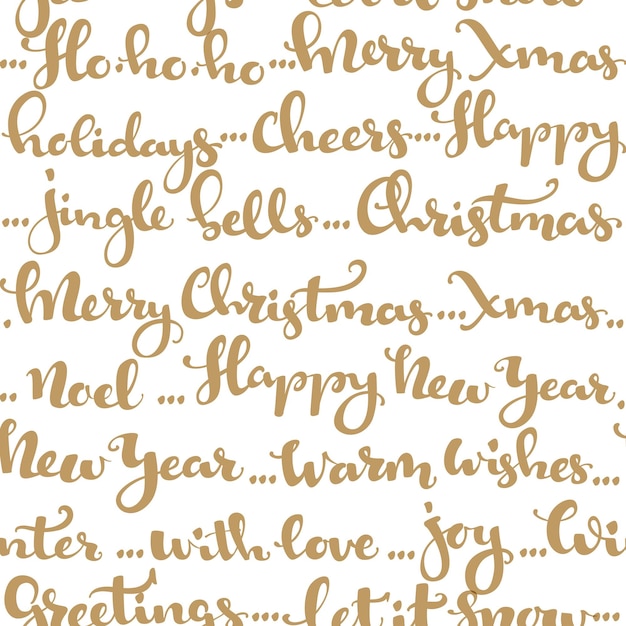 ...Ho-ho-ho...Merry Xmas
holidays...Cheers...Happy
...jingle bells...Christmas
.Merry Christmas...Xmas..
..Noel...Happy New Year.
New Year...warm wishes...
nter...with love...joy...Wi
Greetings...let it snow...